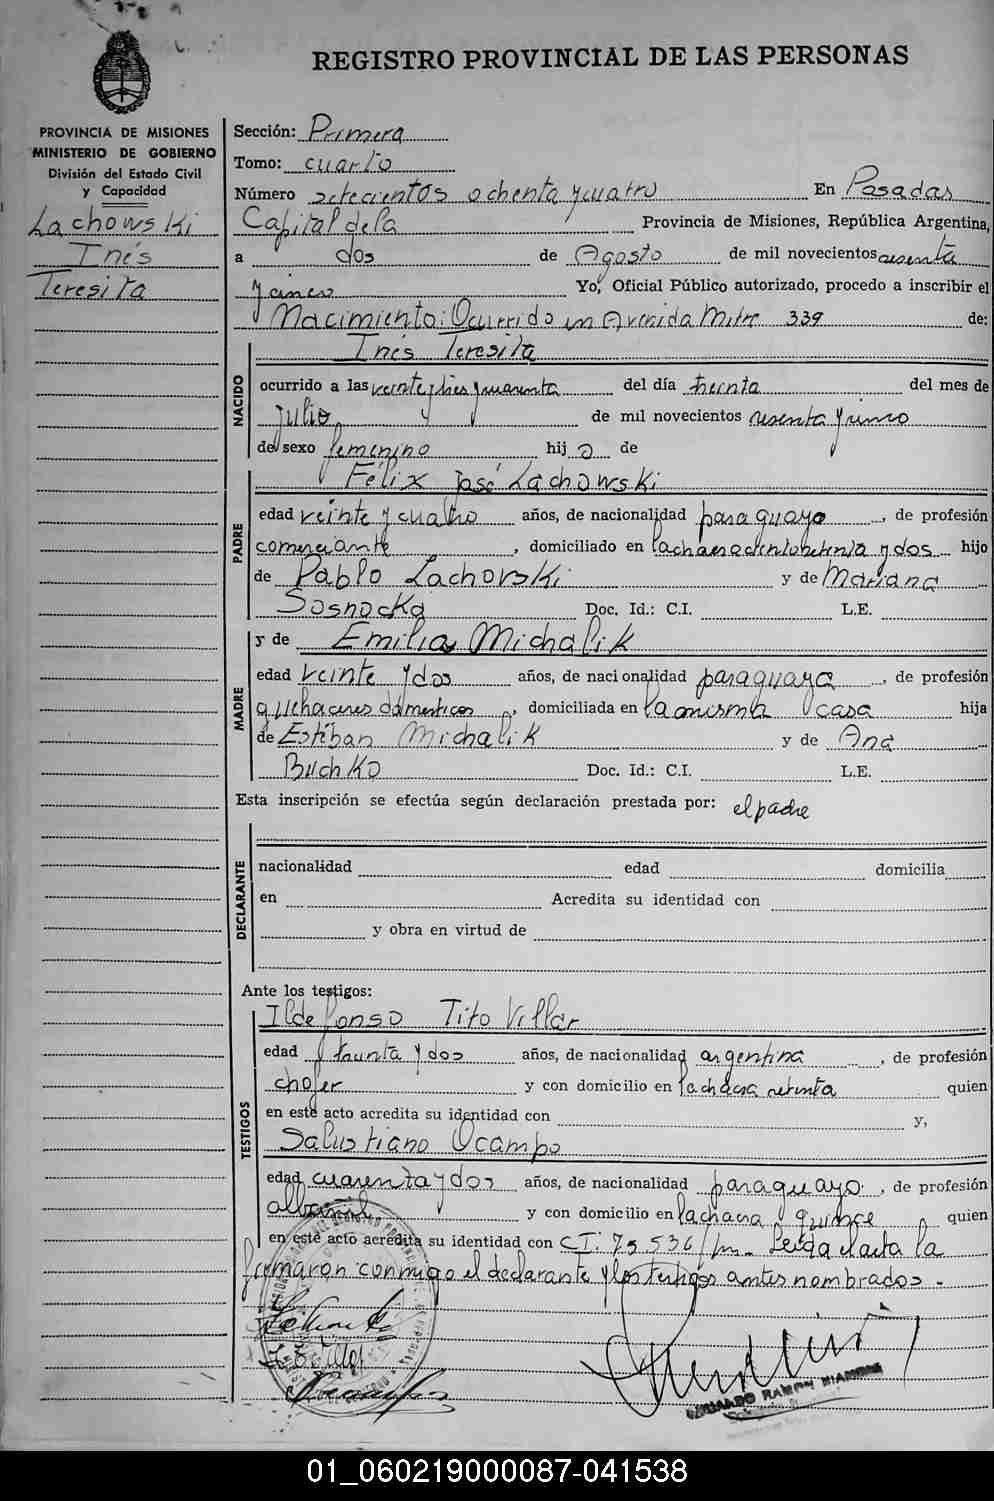 REGISTRO PROVINCIAL DE LAS PERSONAS
PROVINCIA DE MISIONES
MINISTERIO DE GOBIERNO
División del Estado Civil
y Capacidad
Lachowski
Inés
Teresita
Sección: Primera
Tomo: cuarto
Número setecientos ochenta y cuatro En Posadas
Capital de la Provincia de Misiones, República Argentina,
a dos de Agosto de mil novecientos sesenta
y cinco Yo, Oficial Público autorizado, procedo a inscribir el
Nacimiento: Ocurrido en Avenida Mitre 339 de:
NACIDO
Inés Teresita
ocurrido a las veinte y tres y cuarenta del día treinta del mes de
Julio de mil novecientos sesenta y cinco
de sexo femenino hij a de
PADRE
Félix José Lachowski
edad veinte y cuatro años, de nacionalidad paraguayo, de profesión
comerciante, domiciliado en la chacra ciento ochenta y dos hijo
de Pablo Lachovski y de Mariana
Sosnocka Doc. Id.: C.I. L.E.
MADRE
y de Emilia Michalik
edad veinte y dos años, de nacionalidad paraguaya, de profesión
quehaceres domesticos, domiciliada en la misma casa hija
de Estéban Michalik y de Ana
Buchko Doc. Id.: C.I. L.E.
Esta inscripción se efectúa según declaración prestada por: el padre
DECLARANTE
nacionalidad edad domicilia
en Acredita su identidad con
y obra en virtud de
Ante los testigos:
TESTIGOS
Ildefonso Tito Villar
edad treinta y dos años, de nacionalidad argentina, de profesión
chofer y con domicilio en la chacra setenta quien
en este acto acredita su identidad con y,
Salustiano Ocampo
edad cuarenta y dos años, de nacionalidad paraguayo, de profesión
albañil y con domicilio en la chacra quince quien
en este acto acredita su identidad con C.I. 75.536/m. Leida el acta la
firmaron conmigo el declarante y los testigos antes nombrados.
RAMON
01_060219000087-041538